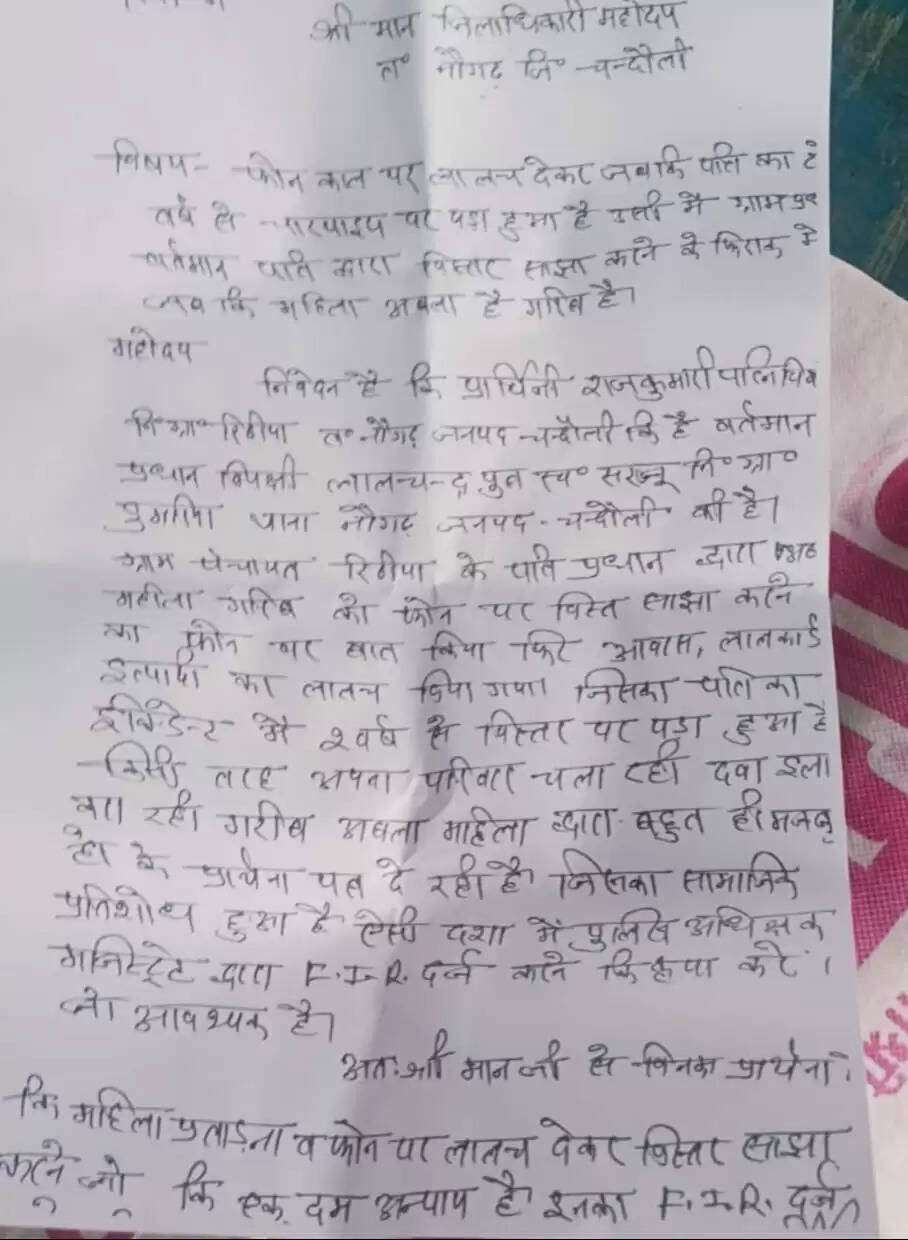 श्री मान जिलाधिकारी महोदय
त० नौगढ़ जि० चन्दौली
विषय- फोन काल पर लालच देकर जबकि पति का 2
वर्ष से चारपाइय पर पड़ा हुआ है उसी में ग्राम
वर्तमान पति द्वारा विस्तार साझा करने के फिराक में
जब कि महिला अबला है गरिब है।
महोदय
निवेदन है कि प्रार्थिनी राजकुमारी पत्नि
नि०ग्रा० रिठीया त० नौगढ़ जनपद चन्दौली कि है वर्तमान
प्रधान विपक्षी लालचन्द्र पुत्र स्व० सरजू नि०ग्रा०
थाना नौगढ़ जनपद - चन्दौली की है।
ग्राम पंचायत रिठीया के पति प्रधान द्वारा
महीला गरिब को फोन पर विस्त साझा करने
का फोन पर बात किया फिर आवास, लालकार्ड
इत्यादी का लालच दिया गया। जिसका पति का
में 2 वर्ष से विस्तर पर पड़ा हुआ है
किसी तरह अपना परिवार चला रही दवा इला
करा रही गरीब अबला महिला द्वारा बहुत ही मजबू
हो के प्रार्थना पत्र दे रही है जिसका सामाजिक
प्रतिशोध हुआ है ऐसी दशा में पुलिस अधिक्षक
मजिस्ट्रेट द्वारा F.I.R. दर्ज करने कि कृपा करें।
जो आवश्यक है।
अतः श्री मान जी से विनम्र प्रार्थना
कि महिला प्रताड़ना व फोन पर लालच देकर विस्तर साझा
करने जो कि एक दम अन्याय है इनका F.I.R. दर्ज